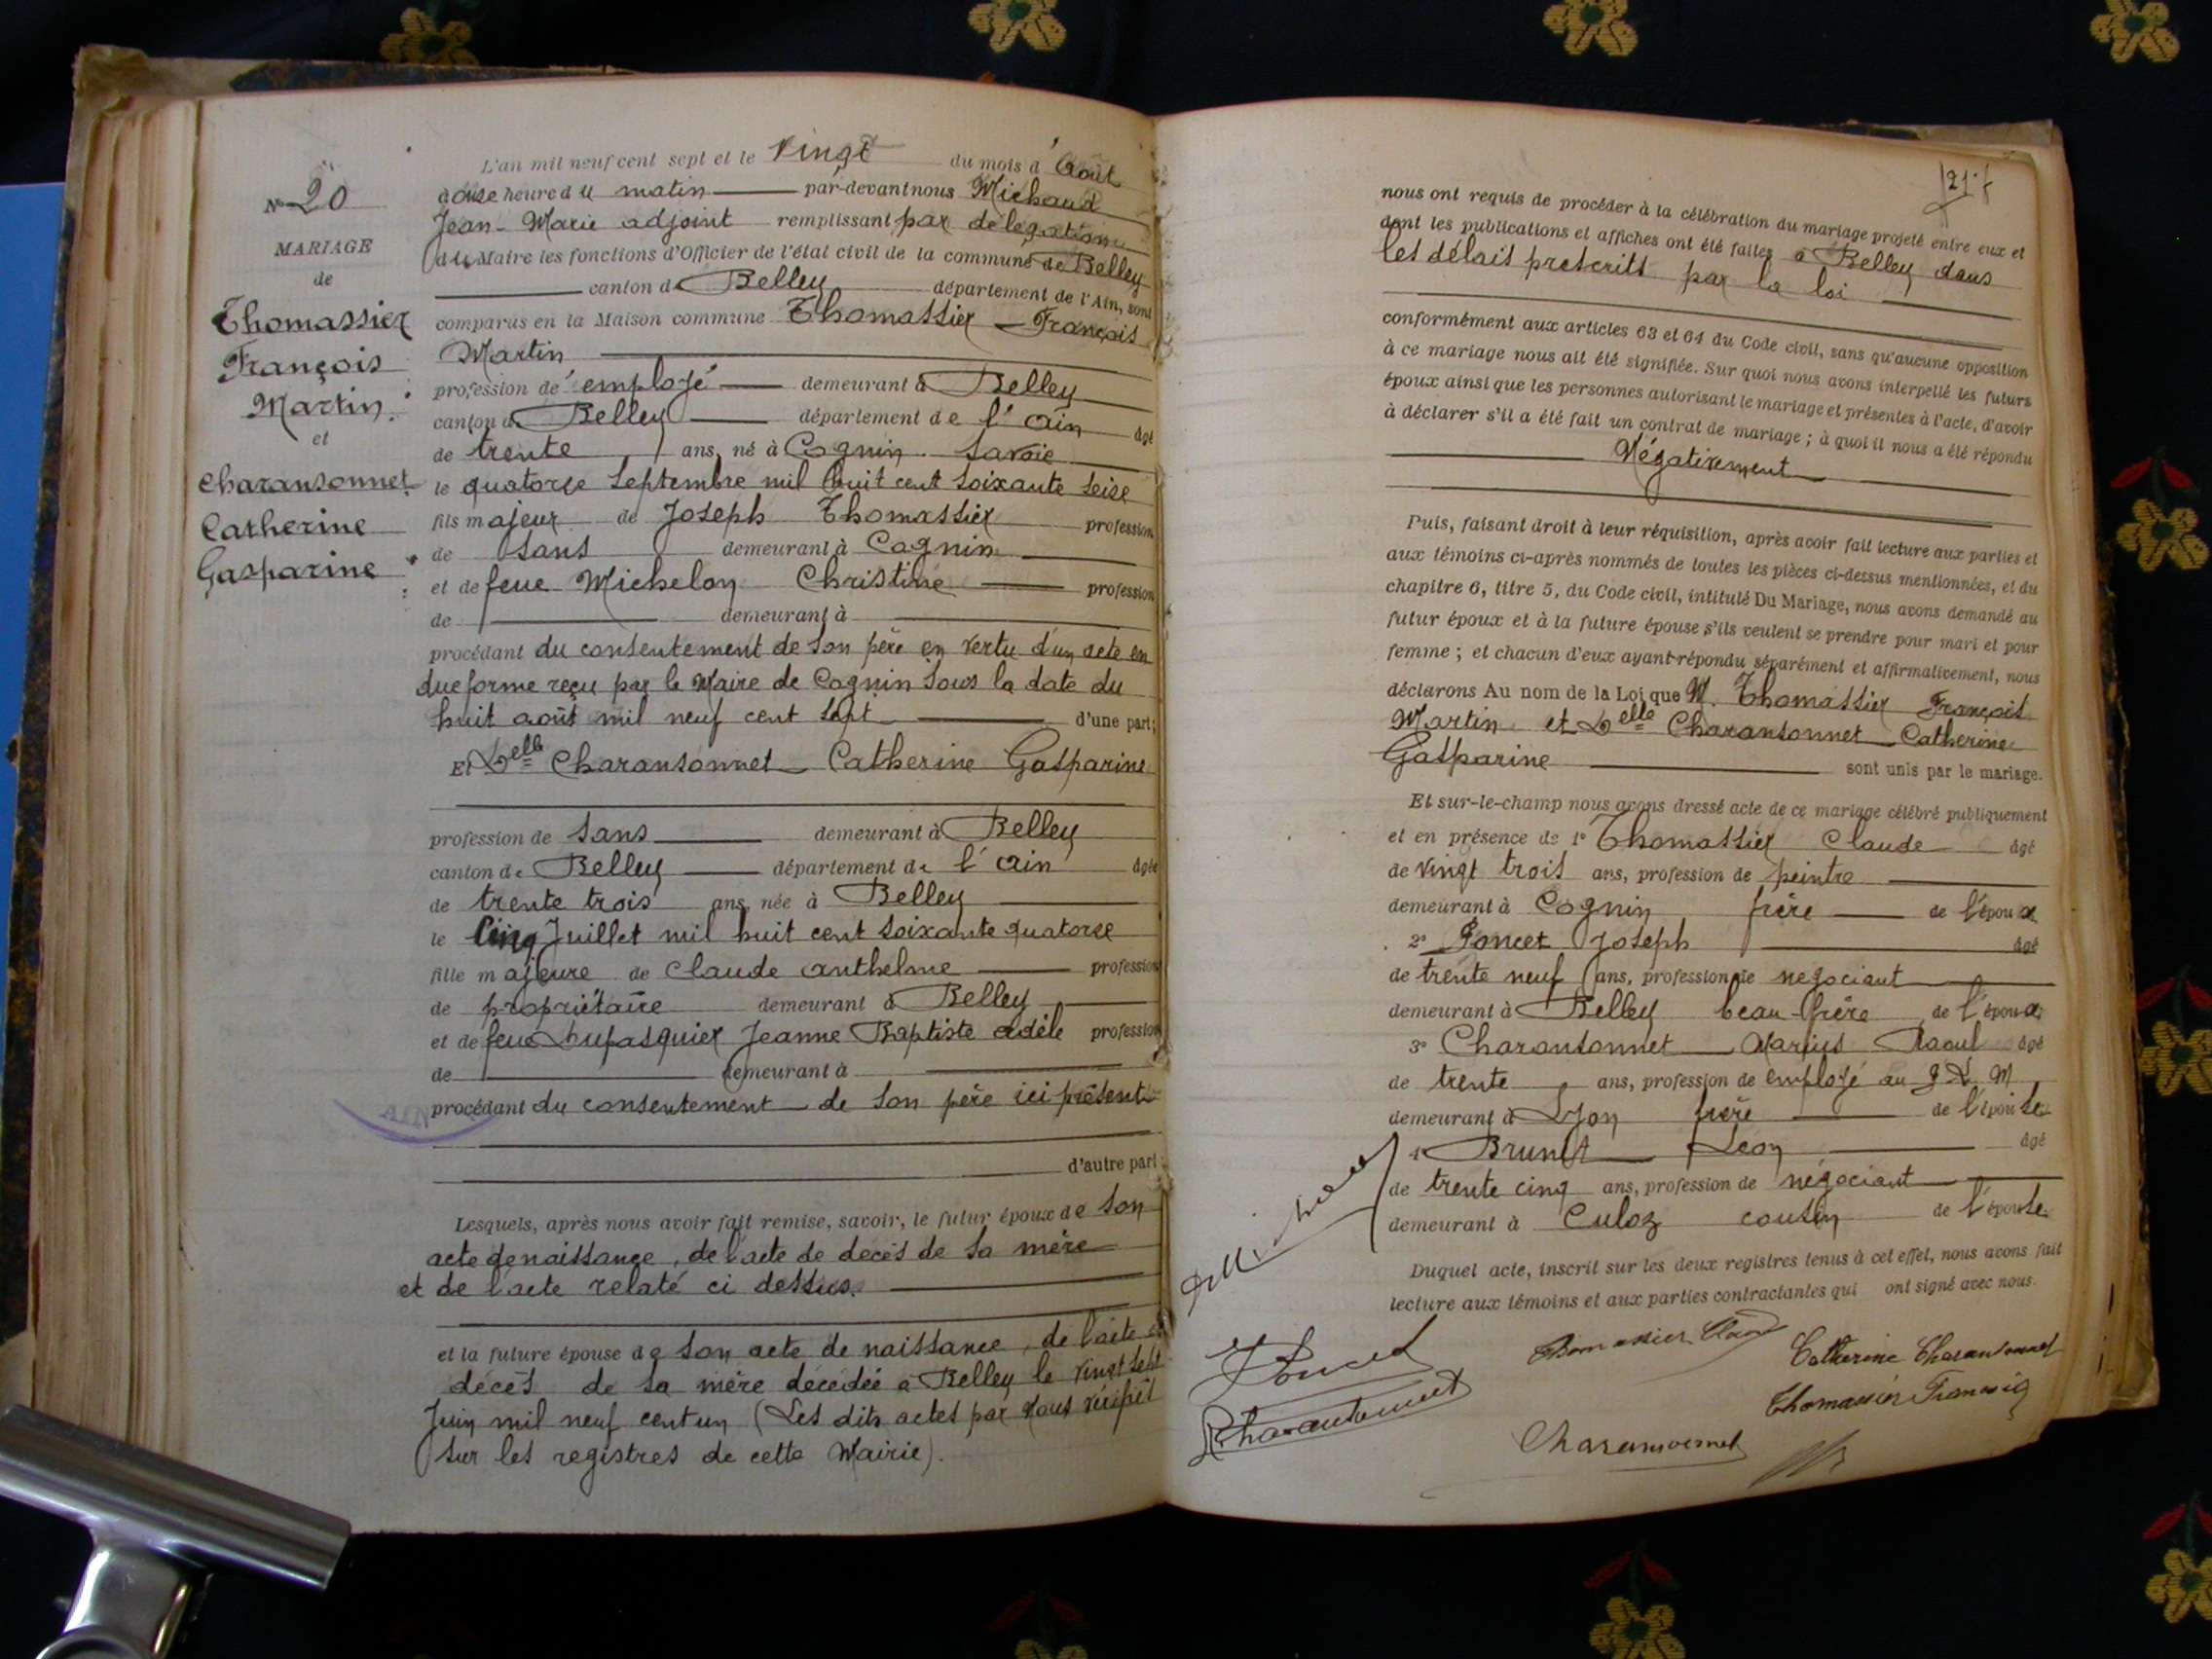 N° 20
MARIAGE
de
Thomassier
François
Martin
et
Charansonnet
Catherine
Gasparine
L'an mil neuf cent sept et le vingt du mois d'Août
à onze heure du matin par-devant nous Michaud
Jean-Marie adjoint remplissant par délégation
du Maire les fonctions d'Officier de l'état civil de la commune de Belley
canton de Belley département de l'Ain, sont
comparus en la Maison commune Thomassier François
Martin
profession de employé demeurant à Belley
canton de Belley département de l'Ain âgé
de trente ans, né à Cognin Savoie
le quatorze Septembre mil huit cent soixante seize
fils majeur de Joseph Thomassier profession
de sans demeurant à Cognin
et de feue Michelon Christine profession
de demeurant à
procédant du consentement de son père en vertu d'un acte en
due forme reçu par le Maire de Cognin sous la date du
huit août mil neuf cent sept d'une part;
Et Delle Charansonnet Catherine Gasparine
profession de sans demeurant à Belley
canton de Belley département de l'Ain âgée
de trente trois ans, née à Belley
le cinq Juillet mil huit cent soixante quatorze
fille majeure de Claude Anthelme profession
de propriétaire demeurant à Belley
et de feue Dupasquier Jeanne Baptiste Adèle profession
de demeurant à
procédant du consentement de son père ici présent
AIN
d'autre part;
Lesquels, après nous avoir fait remise, savoir, le futur époux de son
acte de naissance, de l'acte de décès de sa mère
et de l'acte relaté ci dessus.
et la future épouse de son acte de naissance, de l'acte de
décès de sa mère décédée à Belley le vingt sept
Juin mil neuf cent un (Les dits actes par nous vérifiés
sur les registres de cette Mairie).
21
nous ont requis de procéder à la célébration du mariage projeté entre eux et
dont les publications et affiches ont été faites à Belley dans
les délais prescrits par la loi
conformément aux articles 63 et 64 du Code civil, sans qu'aucune opposition
à ce mariage nous ait été signifiée. Sur quoi nous avons interpellé les futurs
époux ainsi que les personnes autorisant le mariage et présentes à l'acte, d'avoir
à déclarer s'il a été fait un contrat de mariage ; à quoi il nous a été répondu
Négativement
Puis, faisant droit à leur réquisition, après avoir fait lecture aux parties et
aux témoins ci-après nommés de toutes les pièces ci-dessus mentionnées, et du
chapitre 6, titre 5, du Code civil, intitulé Du Mariage, nous avons demandé au
futur époux et à la future épouse s'ils veulent se prendre pour mari et pour
femme ; et chacun d'eux ayant répondu séparément et affirmativement, nous
déclarons Au nom de la Loi que M. Thomassier François
Martin et Delle Charansonnet Catherine
Gasparine sont unis par le mariage.
Et sur-le-champ nous avons dressé acte de ce mariage célébré publiquement
et en présence de 1° Thomassier Claude âgé
de vingt trois ans, profession de peintre
demeurant à Cognin frère de l'époux
2° Poncet Joseph âgé
de trente neuf ans, profession de négociant
demeurant à Belley beau frère de l'époux
3° Charansonnet Marius Raoul âgé
de trente ans, profession de employé au P L M
demeurant à Lyon frère de l'épouse
4° Brunet Léon âgé
de trente cinq ans, profession de négociant
demeurant à Culoz cousin de l'épouse
Duquel acte, inscrit sur les deux registres tenus à cet effet, nous avons fait
lecture aux témoins et aux parties contractantes qui ont signé avec nous.
Thomassier Claude
Catherine Charansonnet
Poncet
Thomassier François
Charansonnet
Charansonnet